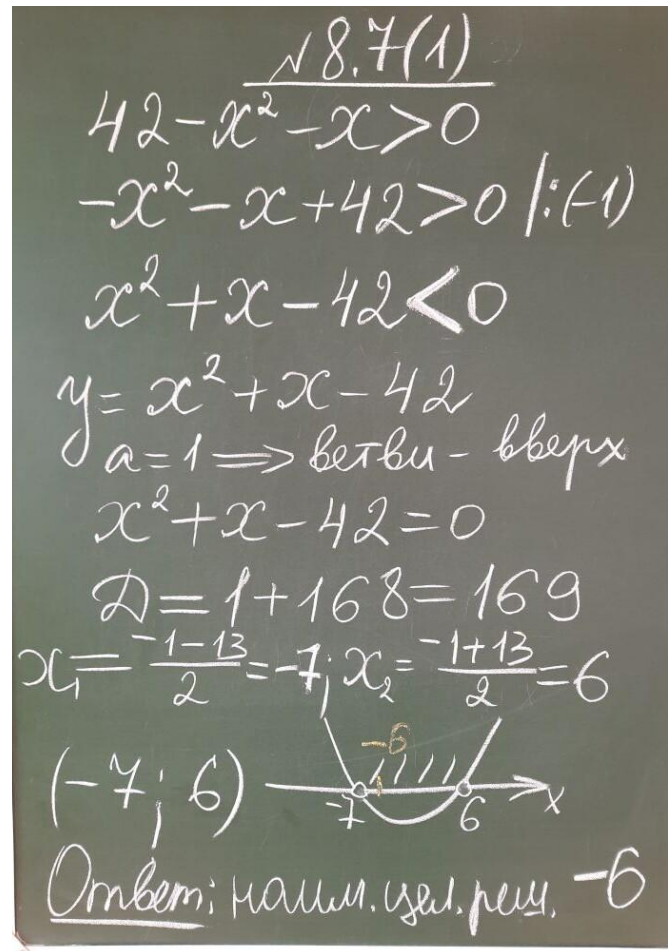 №8.7(1)
42-x²-x>0
-x²-x+42>0 |:(-1)
x²+x-42<0
y=x²+x-42
a=1=>ветви-вверх
x²+x-42=0
Д=1+168=169
x₁=(-1-13)/2=-7; x₂=(-1+13)/2=6
-6
(-7; 6) -7 6 x
Ответ: наим. цел. реш. -6